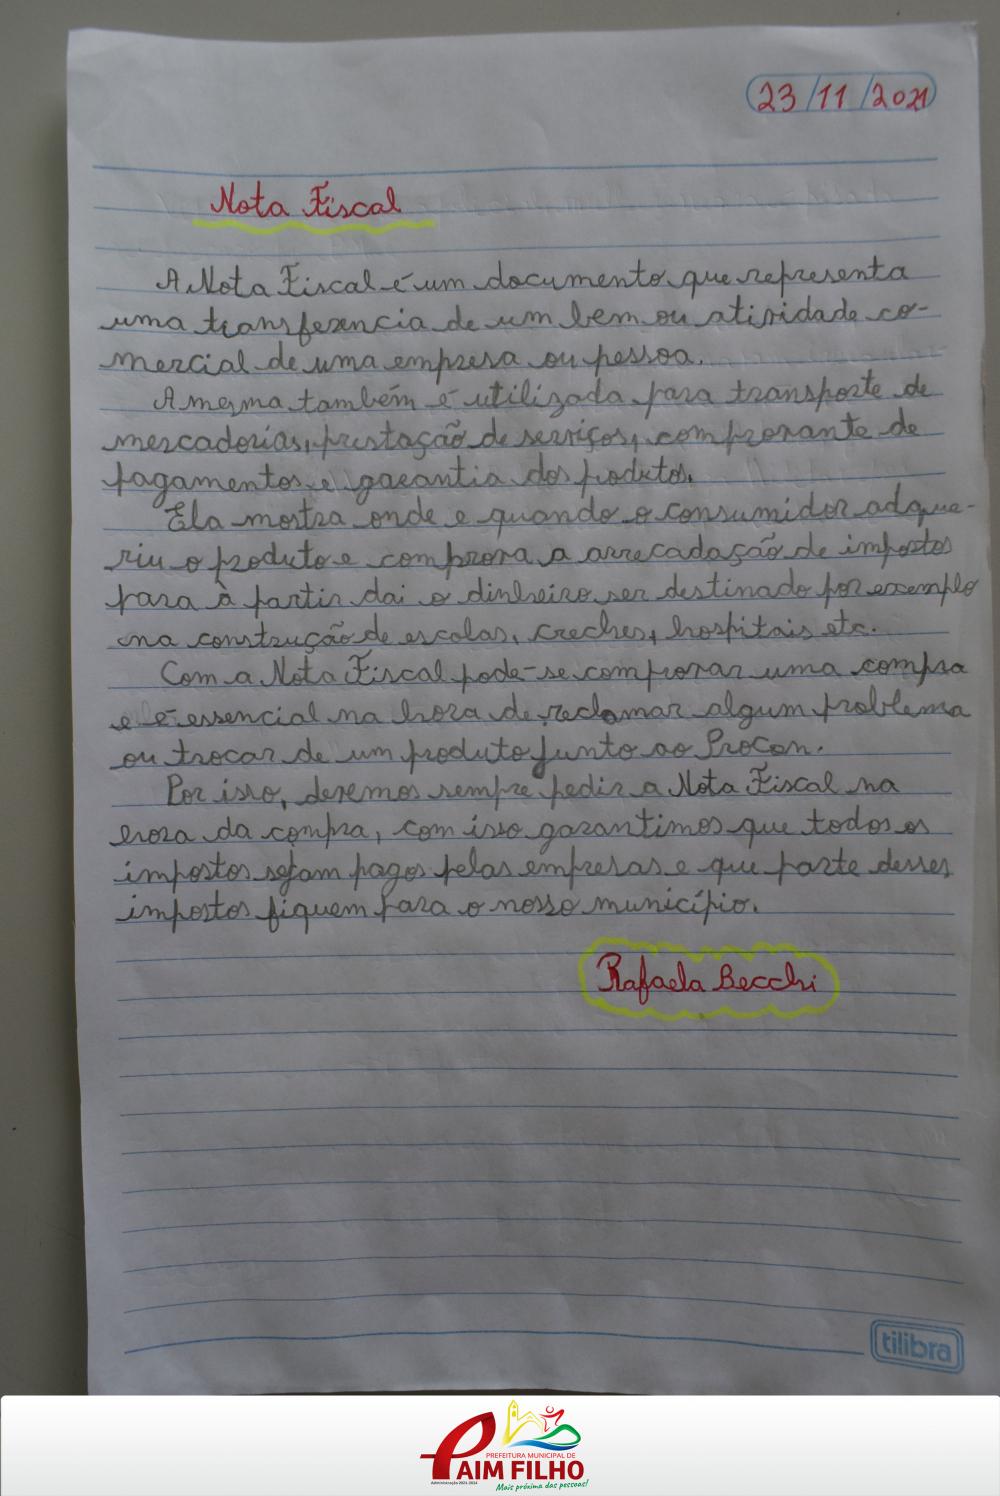 23/11/2021
Nota Fiscal
A Nota Fiscal é um documento que representa
uma transferencia de um bem ou atividade co-
mercial de uma empresa ou pessoa.
A mesma também é utilizada para transporte de
mercadorias, prestação de serviços, comprovante de
pagamentos e garantia dos produtos.
Ela mostra onde e quando o consumidor adque-
riu o produto e comprova a arrecadação de impostos
para à partir dai o dinheiro ser destinado por exemplo
na construção de escolas, creches, hospitais etc.
Com a Nota Fiscal pode-se comprovar uma compra
e é essencial na hora de reclamar algum problema
ou trocar de um produto junto ao Procon.
Por isso, devemos sempre pedir a Nota Fiscal na
hora da compra, com isso garantimos que todos os
impostos sejam pagos pelas empresas e que parte desses
impostos fiquem para o nosso município.
Rafaela Becchi
tilibra
PREFEITURA MUNICIPAL DE
PAIM FILHO
Administração 2021-2024
Mais próxima das pessoas!